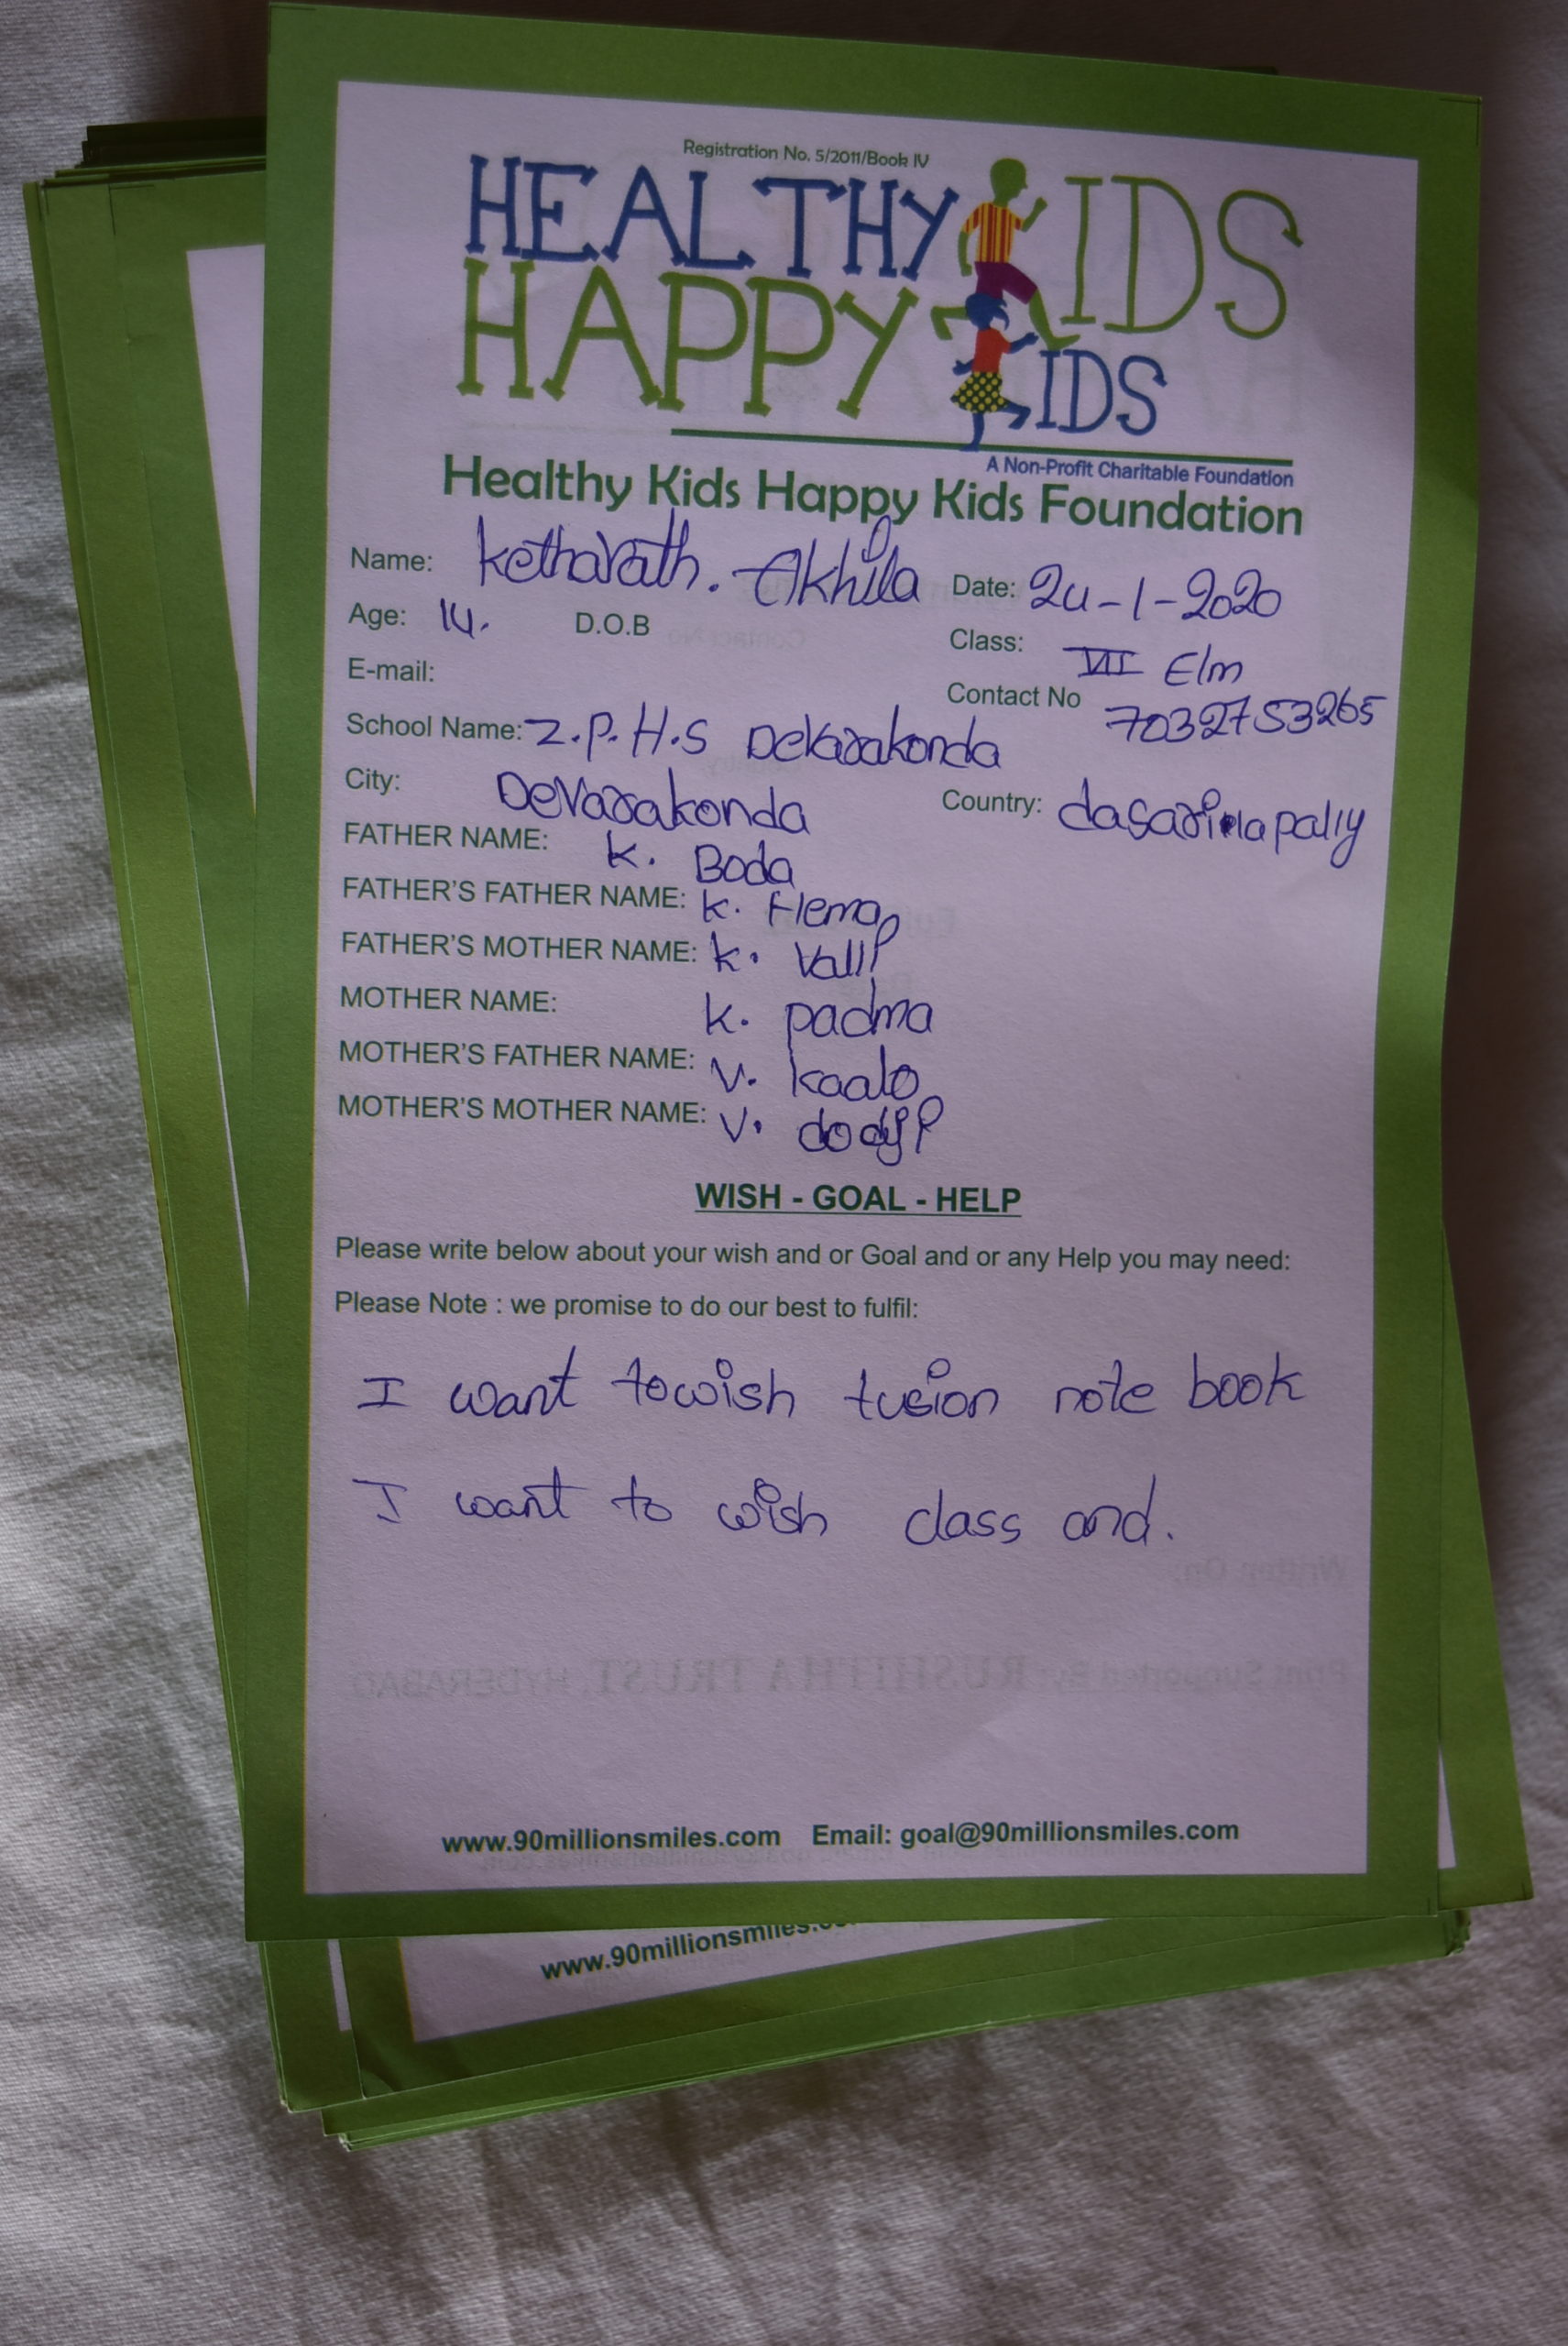 Registration No. 5/2011/Book IV
HEALTHY KIDS
HAPPY KIDS
A Non-Profit Charitable Foundation
Healthy Kids Happy Kids Foundation
Name: Ketharath. Akhila Date: 24-1-2020
Age: 14. D.O.B Class: VII E/m
E-mail: Contact No 7032753265
School Name: Z.P.H.S Devarakonda
City: Devarakonda Country:
FATHER NAME: K. Boda
FATHER'S FATHER NAME: K. Hema
FATHER'S MOTHER NAME: K. Valli
MOTHER NAME: K. padma
MOTHER'S FATHER NAME: V. kaalo
MOTHER'S MOTHER NAME: V.
WISH - GOAL - HELP
Please write below about your wish and or Goal and or any Help you may need:
Please Note : we promise to do our best to fulfil:
I want towish tusion note book
I want to wish class and.
Written On:
Print Supported By: RUSHITHA TRUST, HYDERABAD
www.90millionsmiles.com Email: goal@90millionsmiles.com
www.90millionsmiles.co